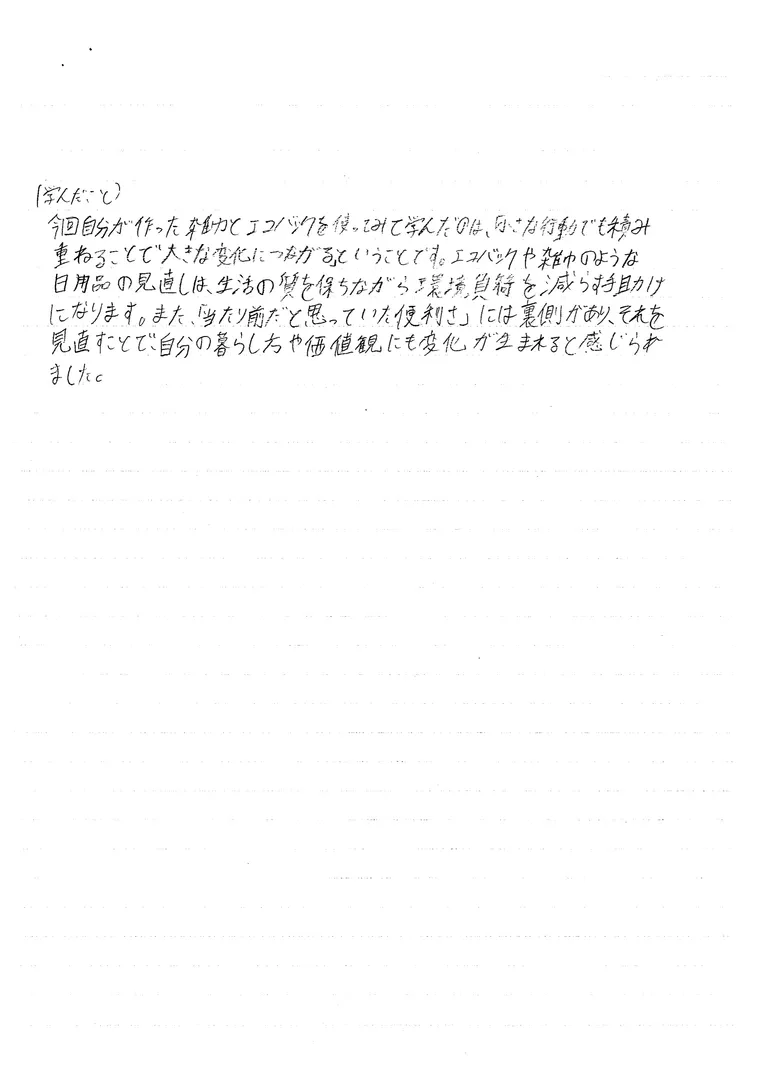 (学んだこと)
今回自分が作った雑巾とエコバックを使ってみて学んだのは、小さな行動でも積み
重ねることで大きな変化につながるということです。エコバックや雑巾のような
日用品の見直しは、生活の質を保ちながら環境負荷を減らす手助け
になります。また、「当たり前だと思っていた便利さ」には裏側があり、それを
見直すことで、自分の暮らし方や価値観にも変化が生まれると感じられ
ました。